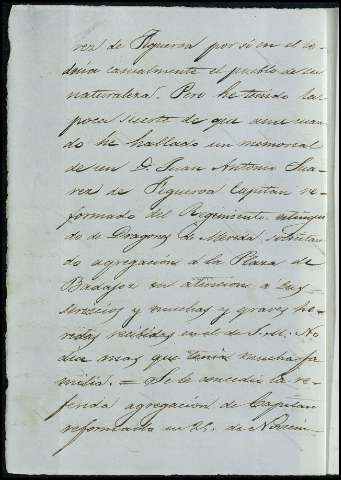 rez de Figueroa por si en el se
casualmente el pueblo de su
naturaleza. Pero he tenido tan
poca suerte de que aun cuan-
do he hallado un memorial
de un D. Juan Antonio Sua-
rez de Figueroa Capitan re-
formado del Regimiento extingui-
do de Dragones de Merida solicitan
do agregación a la Plaza de
Badajoz en atencion a sus
servicios y muchas y graves he-
ridas recibidas en el de S.M: No
dice mas que tenia mucha fa-
milia. = Se le concedió la re-
ferida agregación de Capitan
reformado en 22. de Noviem-